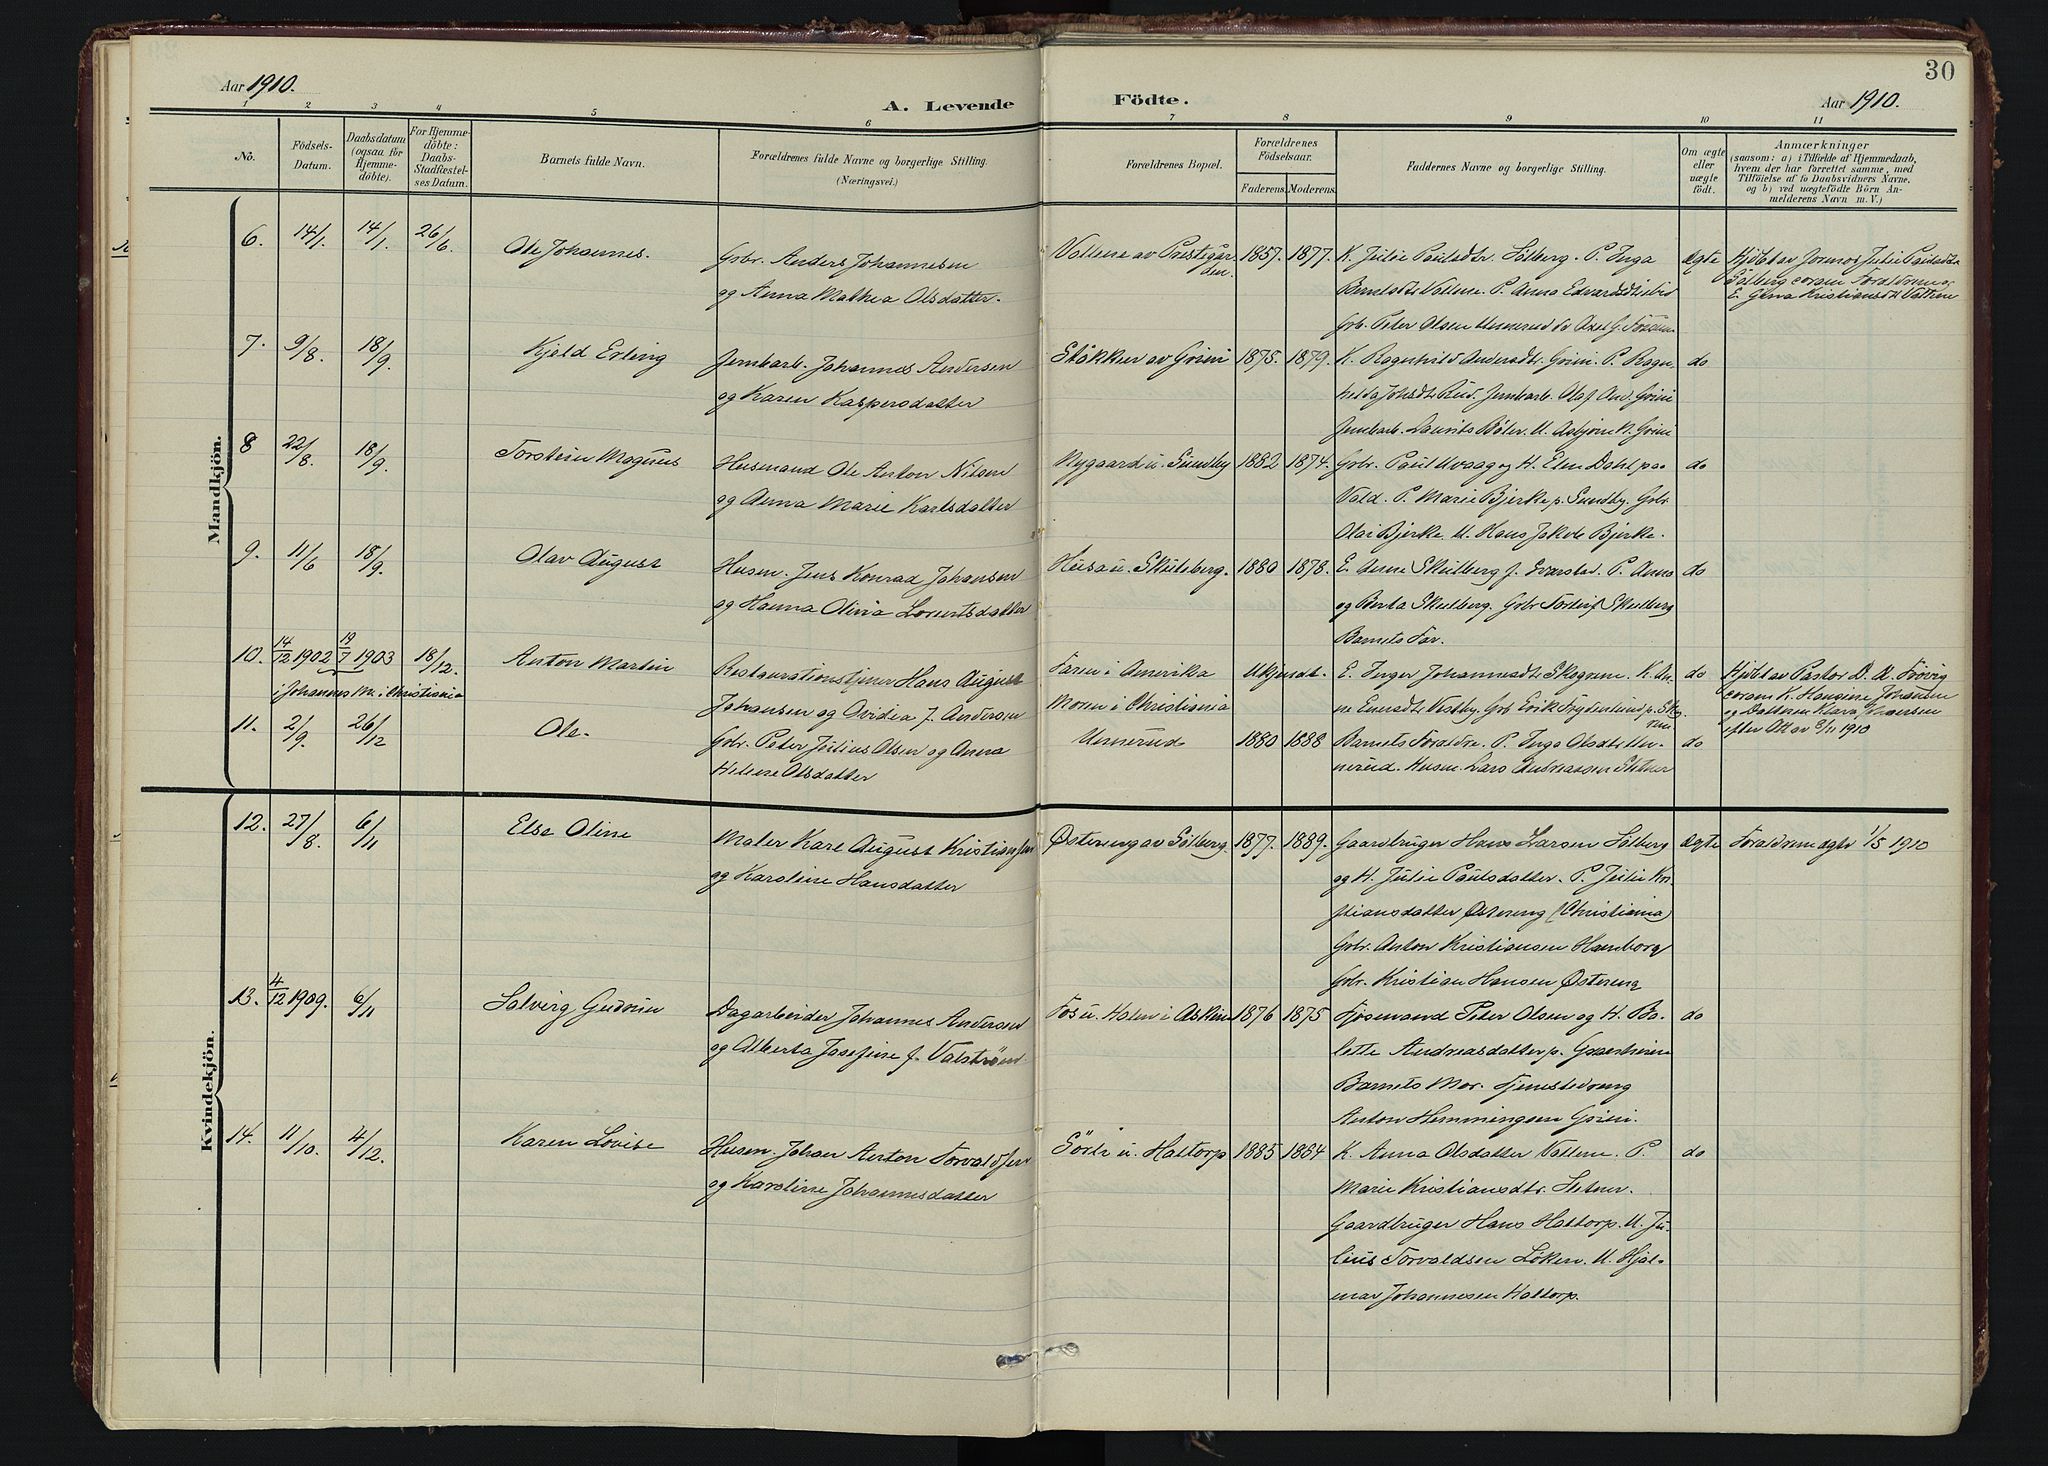 30
Aar 1910.
A. Levende Födte.
Aar 1910.
1 2 3 4 5 6 7 8 9 10 11
No.
Födsels-
Datum.
Daabsdatum
(ogsaa for
Hjemme-
döbte).
For Hjemme-
döbte:
Daabs-
Stadfæstel-
ses Datum.
Barnets fulde Navn.
Forældrenes fulde Navne og borgerlige Stilling.
(Næringsvei.)
Forældrenes Bopæl.
Forældrenes
Födselsaar.
Faderens. Moderens.
Faddernes Navne og borgerlige Stilling.
Om ægte
eller
uægte
födt.
Anmærkninger
(saasom: a) i Tilfælde af Hjemmedaab,
hvem der har forrettet samme, med
Tilföielse af to Daabsvidners Navne,
og b) ved uægtefödte Börn An-
melderens Navn m.V.)
Mandkjön.
6. 14/1. 14/1. 26/6. Ole Johannes.
Gbr. Anders Johannesen
og Anna Mathea Olsdatter.
Vollene av Prestegar
den.
1857. 1877.
K. Julie Paulsdtr. Sölberg. P. Inga
Vollene. P. Anna
Gbr. Peter Olsen Unnerud
ægte
Hjdbt av Jormor Julie Paulsdtr
Sölberg coram Forældrene og
E. Kristiansdt. Vollene
7. 9/8. 18/9. Kjeld Erling
Jernbarb. Johannes Andersen
og Karen Kaspersdatter
Stokker av Grini
1875. 1879.
K. Ragnhild Andersdtr. Grini. P. Ragn-
Jernbarb. Olaf And. Grini
Jernbarb. Laurits Böler. U. Asbjörn N. Grini
do
8 22/8. 18/9. Torstein Magnus
Husmand Ole Anton Nilsen
og Anna Marie Karlsdatter
Nygaard u. Sundby
1882 1874.
Gbr. Paul Uvaag og H. Elen Dahl paa
Vald. P. Marie Bjerke p. Sundby. Gbr.
Olai Bjerke. U. Hans Jakob Bjerke.
do
9. 11/6 18/9. Olav August
Husm. Jens Konrad Johansen
og Hanna Olivia Lorentsdatter
Husa u. Skuleberg.
1880 1878.
E. Anne Skulberg f. Ivarstad. P. Anna
og Berta Skulberg. Gbr Torleif Skulberg
Barnets Far.
do
10. 14/12 1902 19/7 1903 18/12. Anton Martin
i Johannes M. i Christiania
Restaurationstjener Hans August
Johansen og Ovidia f. Andersen
Faren i Amerika
Moren i Christiania
Ukjendt.
E. Inger Johannesdt Skogrene. K. An-
ne Vestby. Gbr Erik
do
Hjdbt av Pastor D. A. Frövig
coram K. Hansine Johansen
og Datteren Klara Johansen
efter Attest 8/11 1910
11. 2/9. 26/12 Ole.
Gbr. Peter Julius Olsen og Anna
Helene Olsdatter
Unnerud
1880 1888
Barnets Forældre. P. Inga Olsdt. Un-
nerud. Husm. Lars Andreassen Stetner
do
Kvindekjön.
12. 27/8. 6/11 Else Oline
Maler Karl August Kristiansen
og Karoline Hansdatter
Östereng av Sölberg.
1877. 1889.
Gaardbruger Hans Larsen Sölberg
og H. Julie Paulsdatter. P. Julie Kri-
stiansdatter Östereng (Christiania)
Gbr. Anton Kristiansen Hamborg
Gbr. Kristian Hansen Östereng
ægte
Forældrene ægtev 1/5 1910
13. 4/12 1909. 6/11 Solveig Gudrun
Dagarbeider Johannes Andersen
og Alberta Josefine f. Valström.
Fos u. Holm i Askim
1876 1875
Fjösmand Peter Olsen og H. Bo-
lette Andreasdatter p.
Barnets Mor. Tjenestedreng
Anton Hemmingsen Grini.
do
14. 11/10. 4/12. Karen Lovise
Husm. Johan Anton Torvaldsen
og Karoline Johannesdatter
Sörli u. Haltorp
1885 1884
K. Anna Olsdatter Vollene. P.
Marie Kristiansdtr. Stetner.
Gaardbruger Hans Haltorp. U. Ju-
lius Torvaldsen Löken. U. Hjal-
mar Johannesen Haltorp.
do